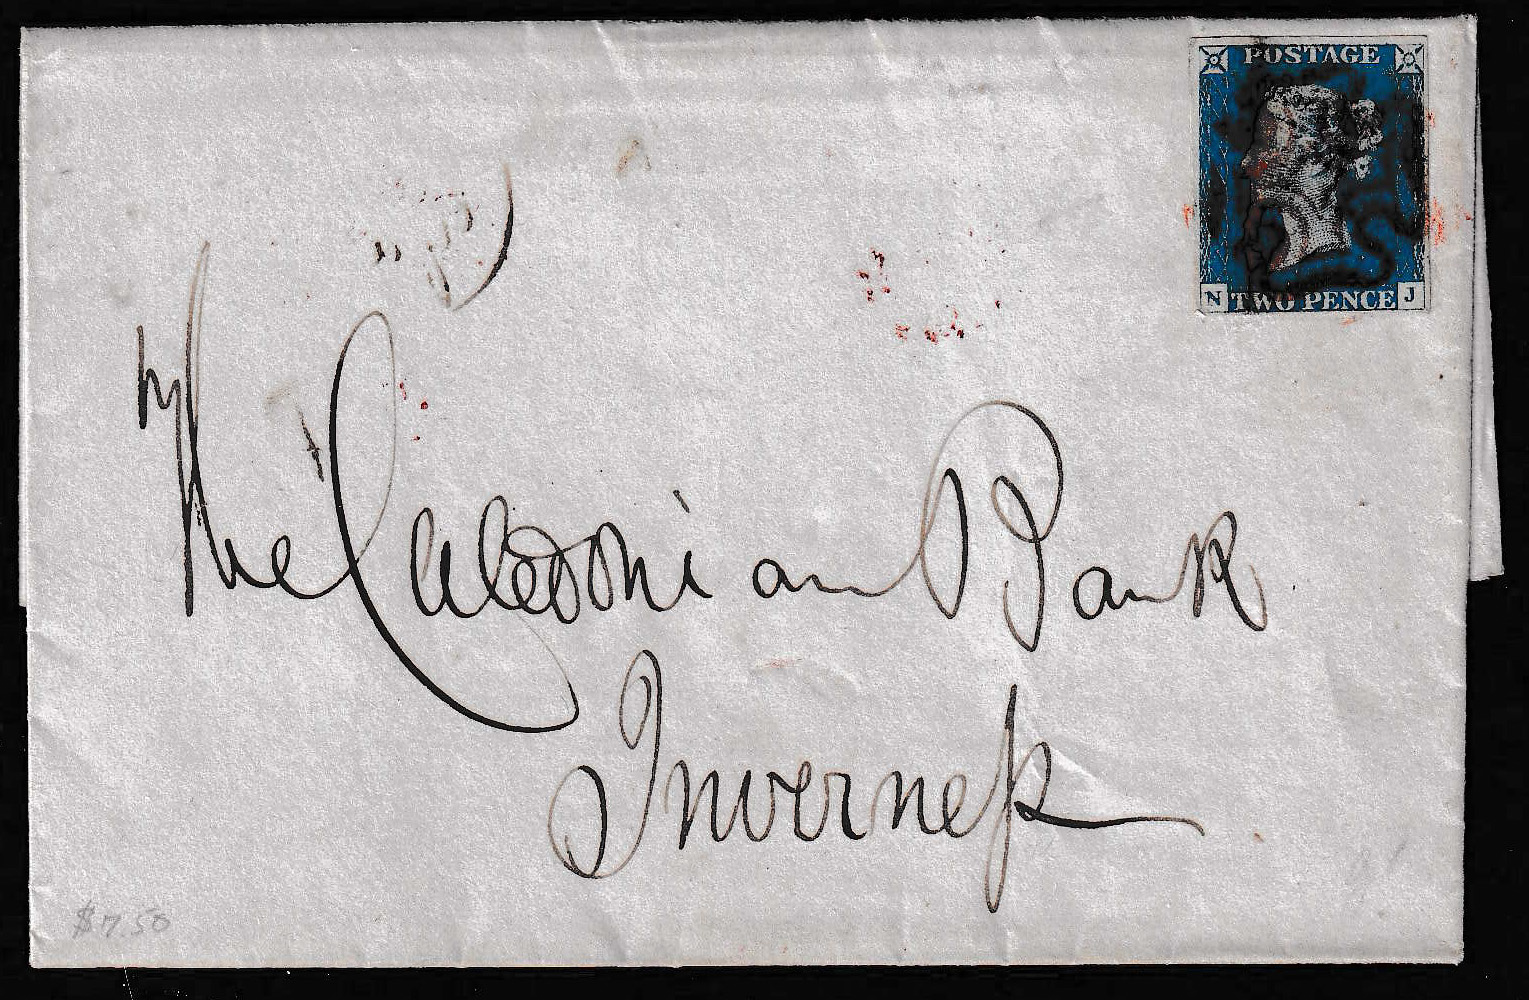 POSTAGE
N TWO PENCE J
The Caledonian Bank
Inverness
$7.50